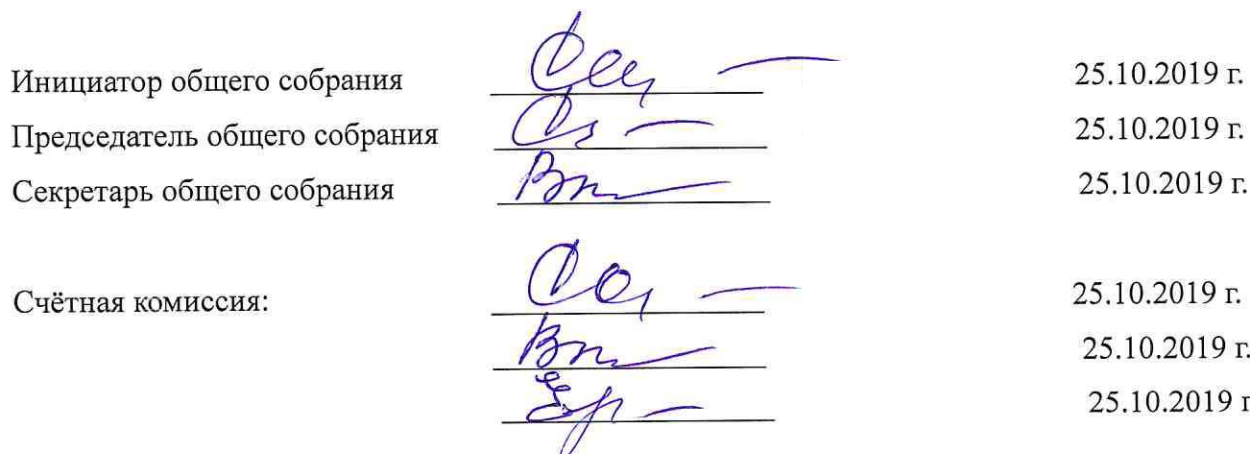 Инициатор общего собрания 25.10.2019 г.
Председатель общего собрания 25.10.2019 г.
Секретарь общего собрания 25.10.2019 г.
Счётная комиссия: 25.10.2019 г.
25.10.2019 г.
25.10.2019 г